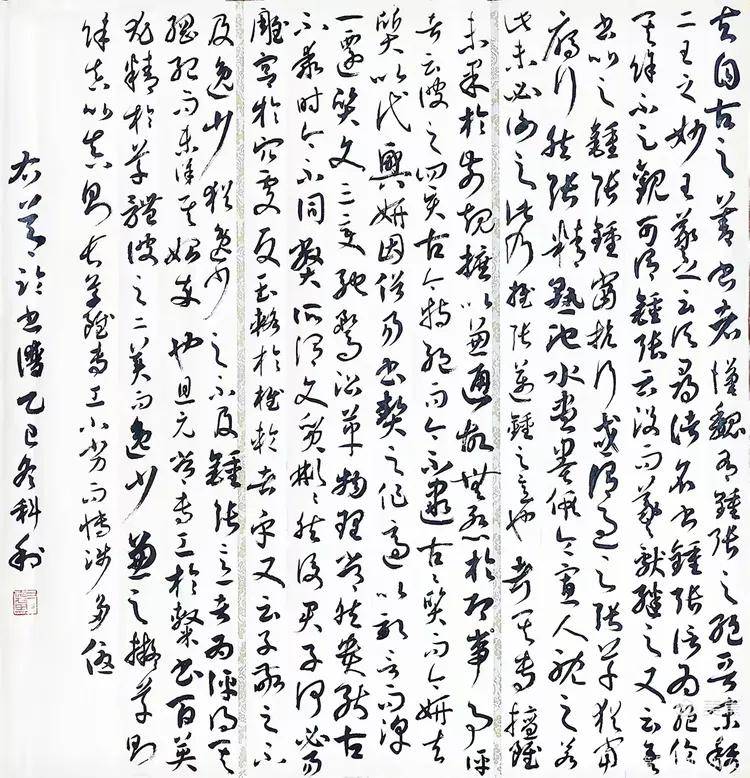 夫自古之善書者漢魏有鍾張之絕晉末稱
二王之妙王羲之云頃尋諸名書鍾張信為絕倫
其餘不足觀可謂鍾張云沒而羲獻繼之又云吾
書比之鍾張鍾當抗行或謂過之張草猶當
雁行然張精熟池水盡墨假令寡人耽之若
此未必謝之此乃推張邁鍾之意也考其專擅雖
未果於前規摭以兼通故無慚於即事評
者云彼之四賢古今特絕而今不逮古古質而今妍夫
質以代興妍因俗易書契之作適以記言而淳
一遷質文三變馳騖沿革物理常然貴能古
不乖時今不同弊所謂文質彬彬然後君子何必易
雕宮於穴處反玉輅於椎輪者乎又云子敬之不
及逸少猶逸少之不及鍾張意者為評得其
綱紀而未詳其始卒也且元常專工於隸書百英
尤精於草體彼之二美而逸少兼之擬草則
餘真比真則長草雖專工小劣而博涉多優
臨書譜乙巳冬科利